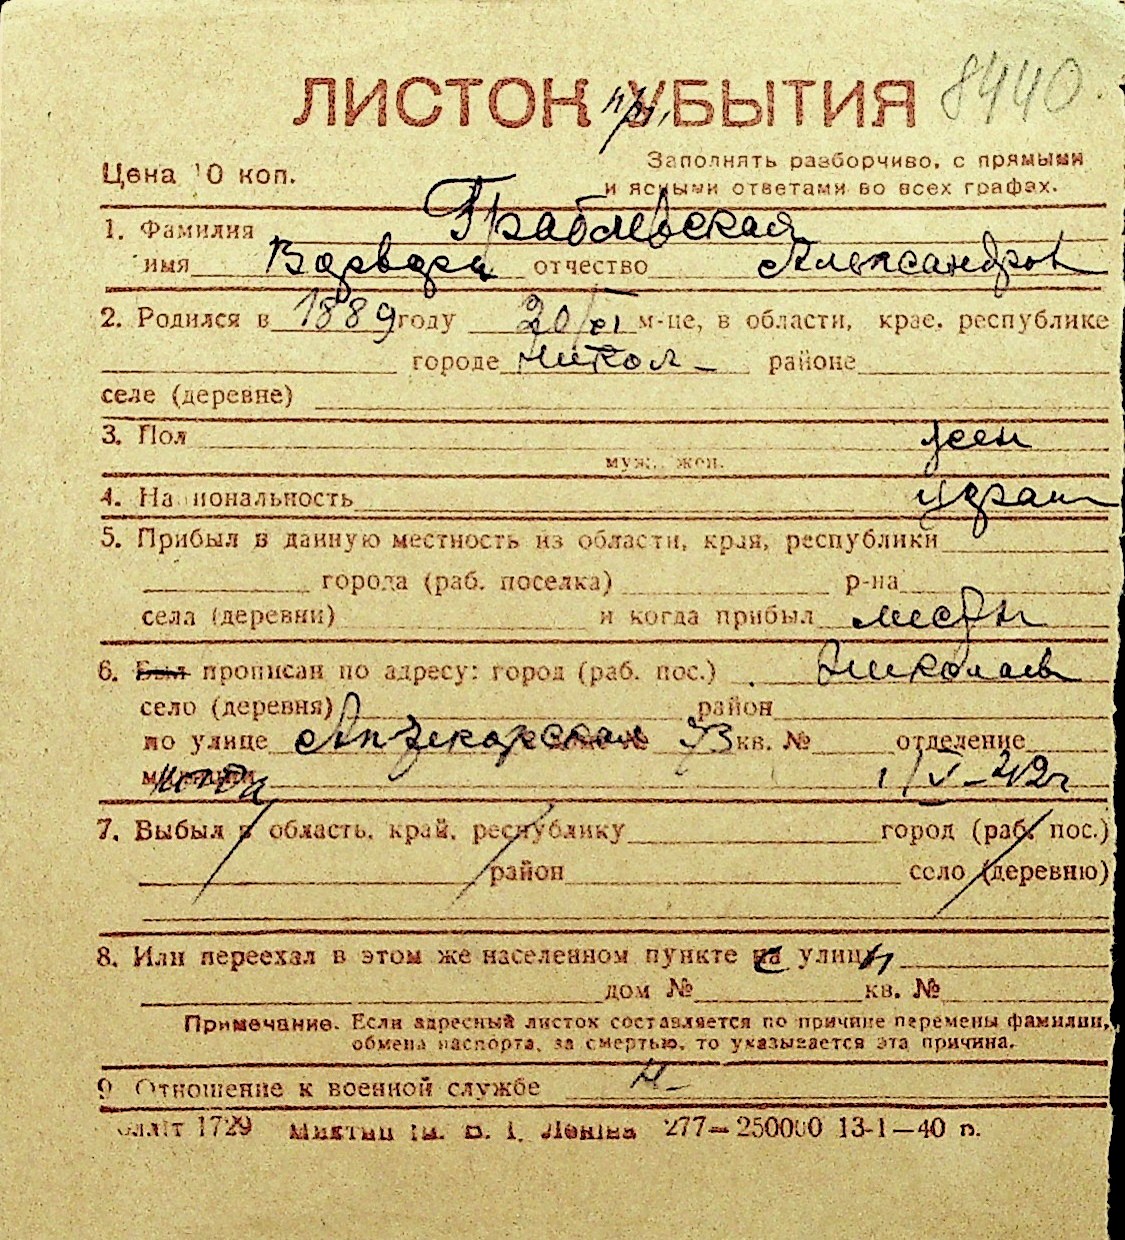 8440.
ЛИСТОК УБЫТИЯ
Цена 10 коп.
Заполнять разборчиво, с прямыми
и ясными ответами во всех графах.
1. Фамилия Граблевская
имя Варвара отчество Александров
2. Родился в 1889 году 20/XI м-це, в области, крае, республике
городе Никол- районе
селе (деревне)
3. Пол жен
муж., жен.
4. Национальность украин
5. Прибыл в данную местность из области, края, республики
города (раб. поселка) р-на
села (деревни) и когда прибыл местн
6. Был прописан по адресу: город (раб. пос.) Николаев
село (деревня) район
по улице Аптекарская 73 кв. № отделение
1/V-42г
7. Выбыл в область, край, республику город (раб. пос.)
район село (деревню)
8. Или переехал в этом же населенном пункте с улицы
дом № кв. №
Примечание. Если адресный листок составляется по причине перемены фамилии,
обмена паспорта, за смертью, то указывается эта причина.
9 Отношение к военной службе Н-
1729 ім. В. І. Леніна 277—250000 13-1—40 п.